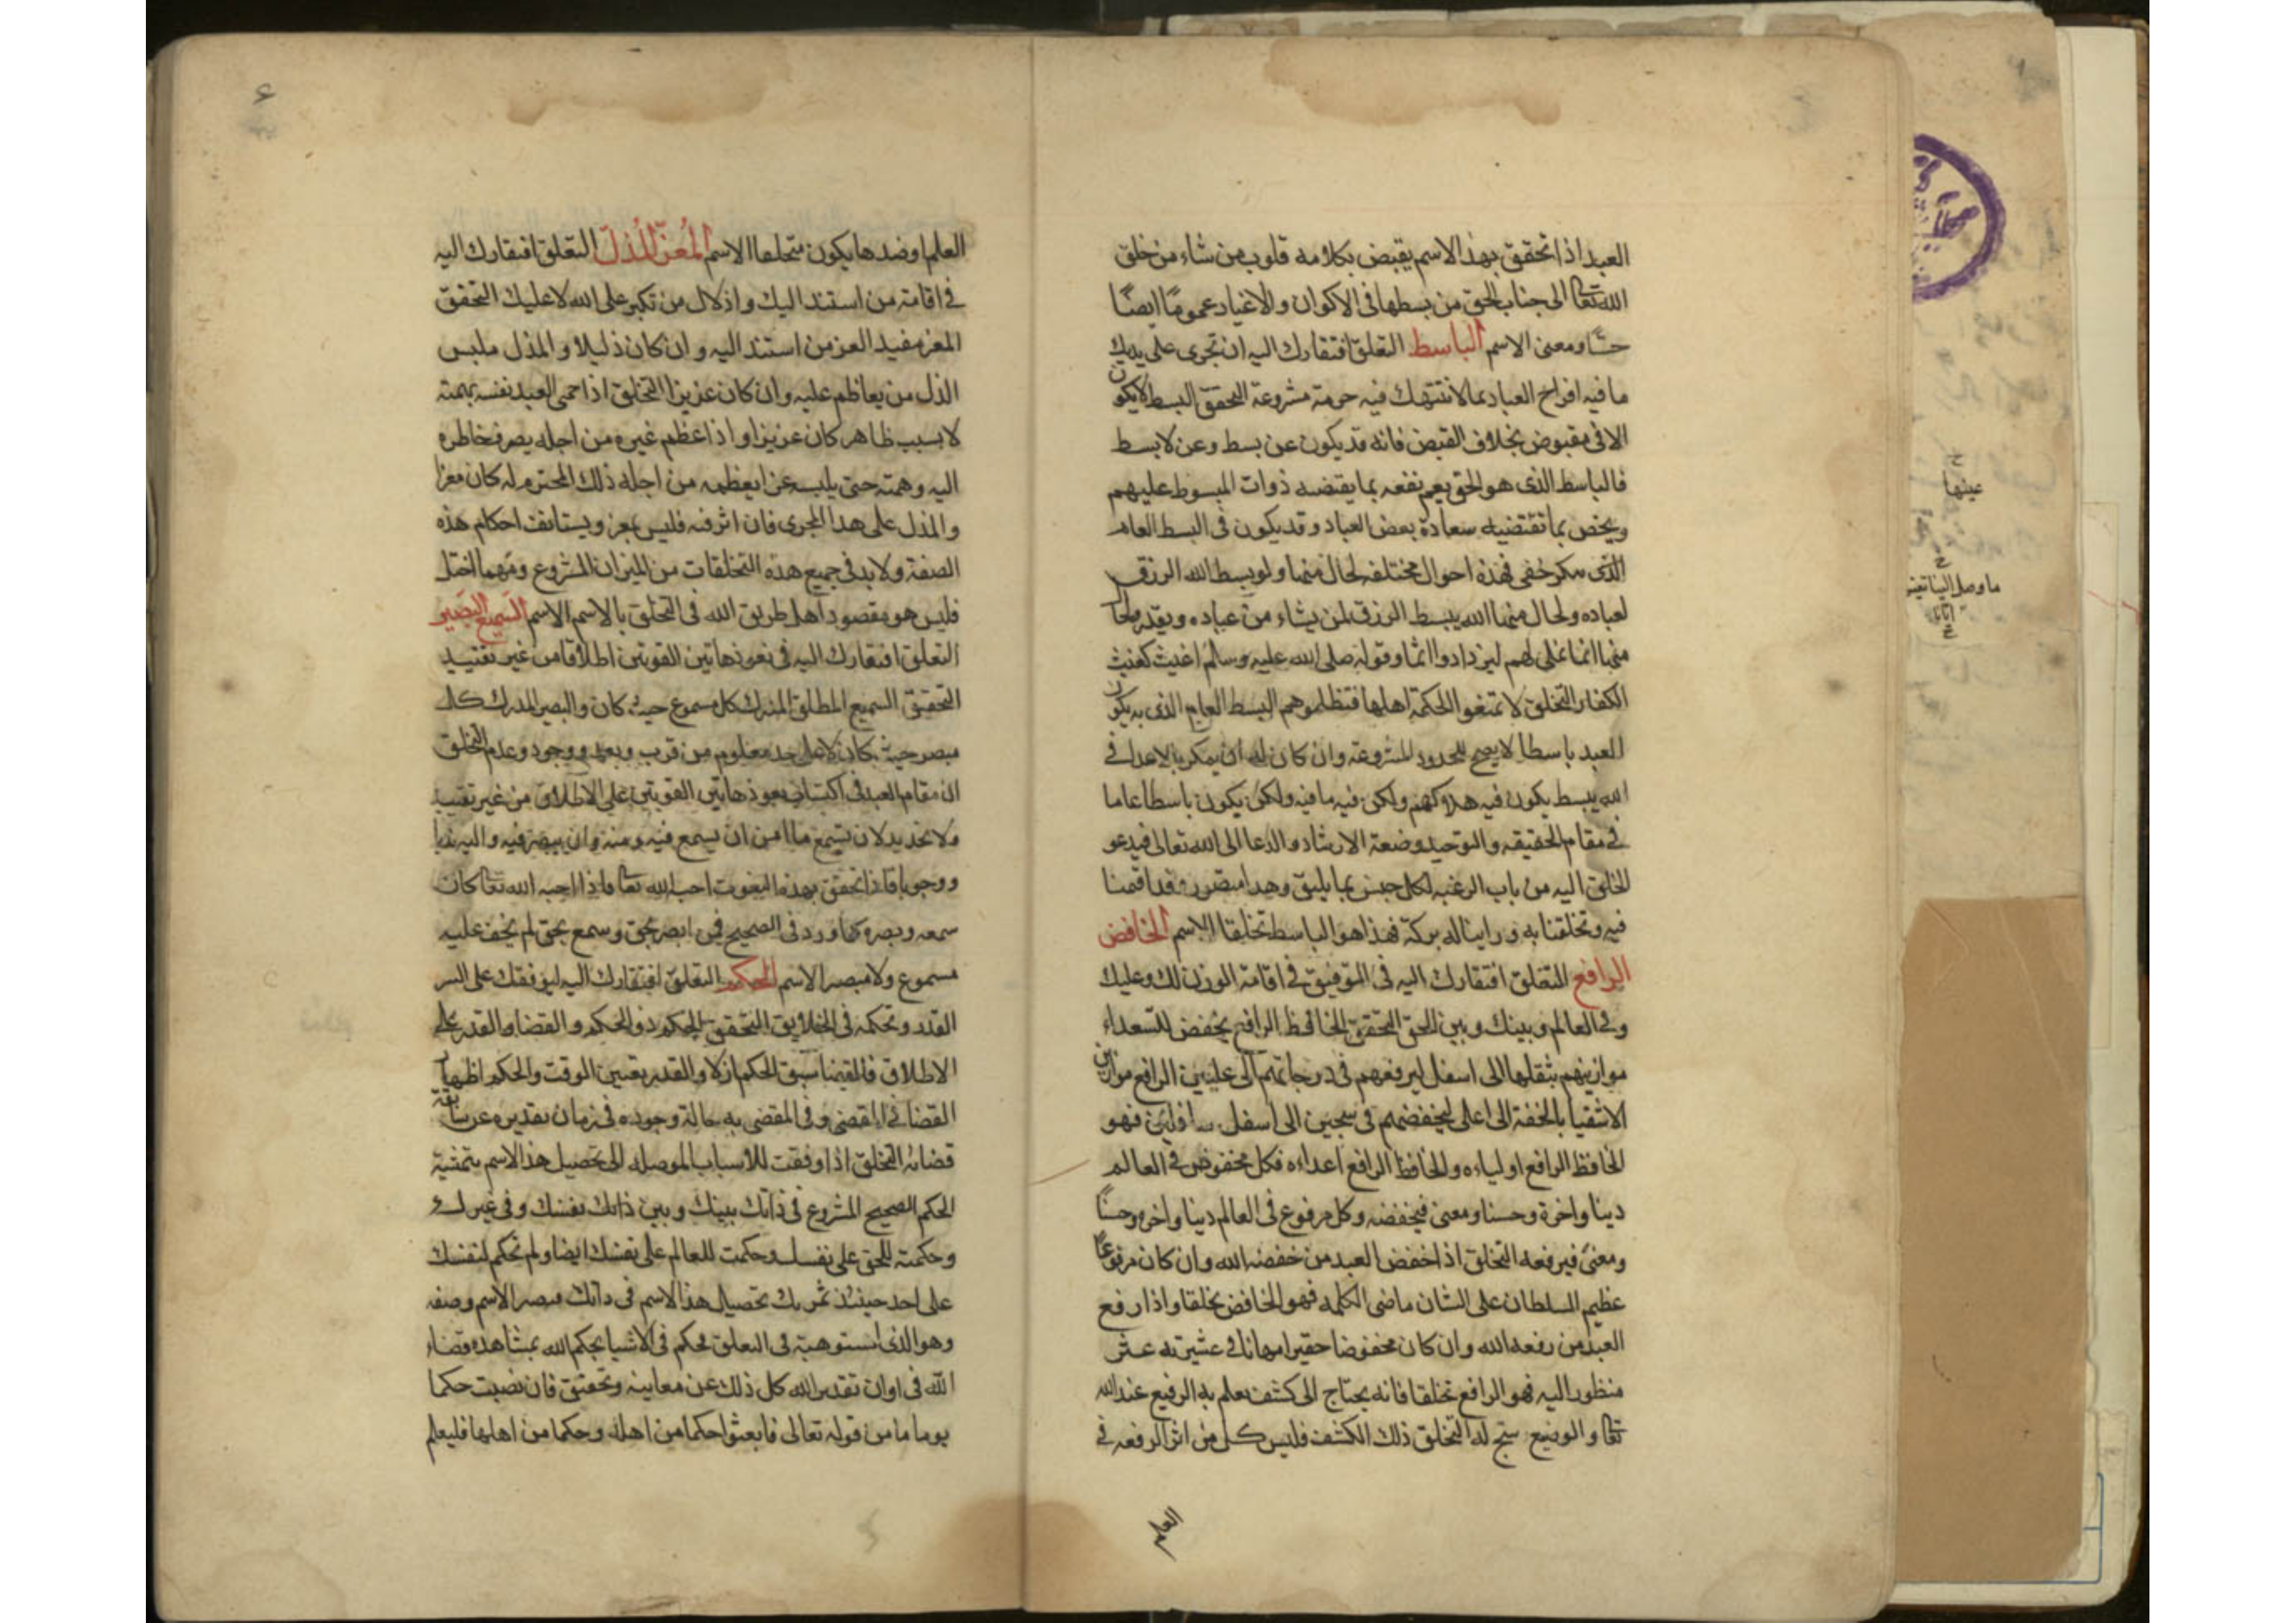 العبد اذا تحقق بهذا الاسم يقبض بكلامه قلوب من شاء من خلق
الله تعا الى جناب الحق من بسطها في الاكوان والاغيار عموما ايضًا
حسًّا ومعنى الاسم الباسط التعلق افتقارك اليه ان تجرى على يديك
ما فيه افراح العباد بما لا تنتهك فيه حرمة مشروعة التحقق البسط لا يكون
الا في مقبوض بخلاف القبض فانه قد يكون عن بسط وعن لا بسط
فالباسط الذى هو الحق يعم نفعه بما يقتضيه ذوات المبسوط عليهم
ويخص بما تقتضيه سعادة بعض العباد وقد يكون في البسط العام
الذى مكر خفى فهذه احوال مختلفه لحال منها ولو بسط الله الرزق
لعباده ولحال منها الله يبسط الرزق لمن يشاء من عباده ويقدر ولحال
منها انما نملى لهم ليزدادوا اثما وقوله صلى الله عليه وسلم اغيث كغيث
الكفار التخلق لا تمنعوا الحكمة اهلها فتظلموهم البسط العام الذى به يكون
العبد باسطا لا يصح للحدود المشروعة وان كان له ان يمكر بالاعدا في
الله يبسط يكون فيه هلاكهم ولكن فيه ما فيه ولكن يكون باسطا عاما
في مقام الحقيقه والتوحيد وضعة الارشاد والدعا الى الله تعالى فيدعو
الخلق اليه من باب الرغبه لكل جنس بما يليق وهذا متصور وقد اقمنا
فيه وتخلقنا به وراينا له بركة فهذا هو الباسط تخلقا الاسم الخافض
الرافع التعلق افتقارك اليه في التوفيق في اقامة الوزن لك وعليك
وفي العالم وبينك وبين الحق التحقق الخافظ الرافع يخفض للسعداء
موازينهم بثقلها الى اسفل ليرفعهم في درجاتهم الى عليين الرافع موازين
الاشقيا بالخفة الى اعلى ليخفضهم في سجين الى اسفل سافلين فهو
الخافظ الرافع اولياءه والخافظ الرافع اعداءه فكل مخفوض في العالم
دينا واخرة وحسنا ومعنى فيخفضه وكل مرفوع في العالم دينا واخره وحسنًا
ومعنى فيرفعه التخلق اذا خفض العبد من خفضه الله وان كان مرفوعًا
عظيم السلطان على الشان ماضى الكلمه فهو الخافض تخلقا واذا رفع
العبد من رفعه الله وان كان مخفوضا حقيرا مهانا في عشيرته
منظورا اليه فهو الرافع تخلقا فانه يحتاج الى كشف يعلم به الرفيع عند الله
تعا والوضيع ينتج له التخلق ذلك الكشف فليس كل من اثر الرفعه في
العلم
العلم او ضدها يكون متخلقا الاسم المُعزّ المُذلّ التعلق افتقارك اليه
في اقامة من استند اليك واذلال من تكبر على الله لا عليك التحقق
المعز مفيد العز من استند اليه وان كان ذليلا والمذل ملبس
الذل من يعاظم عليه وان كان عزيزا التخلق اذا حمى العبد نفسه بهمته
لا بسبب ظاهر كان عزيزا واذا عظم غيره من اجله يصرف خاطره
اليه وهمته حتى يلبسه عزا يعظمه من اجله ذلك المحترم له كان معزا
والمذل على هذا المجرى فان اثر فيه فليس بعز ويستانف احكام هذه
الصفة ولا بد في جميع هذه التخلقات من الميزان المشروع ومهما اختل
فليس هو مقصود اهل طريق الله في التخلق بالاسم الاسم السميع البصير
التعلق افتقارك اليه في نفوذ هاتين القوتين اطلاقا من غير تقييد
التحقيق السميع المطلق المدرك كل مسموع حيث كان والبصير المدرك كل
مبصر حيث كان لا على حد معلوم من قرب وبعد ووجود وعدم التخلق
ان مقام العبد في اكتساب نفوذ هاتين القوتين على الاطلاق من غير تقييد
ولا تحديد لان يسمع ما امر ان يسمع فيه ومنه وان يبصر فيه واليه ندبا
ووجوبا فاذا تحقق بهذه النعوت احب الله تعا فاذا احبه الله تعا كان
سمعه وبصره كما ورد في الصحيح فمن ابصر بحق وسمع بحق لم يخف عليه
مسموع ولا مبصر الاسم الحكم التعلق افتقارك اليه ليوفقك على السر
القدر وتحكمه في الخلايق التحقق الحكم ذو الحكم والقضا والقدر على
الاطلاق فالقضا سبق الحكم ازلا والقدر يعين الوقت والحكم اظهار
القضا في المقضى وفي المقضى به حالة وجوده في زمان تقديره عن سابقة
قضائه التخلق اذا وفقت للاسباب الموصله الى تحصيل هذا الاسم بتمشية
الحكم الصحيح المشروع في ذاتك بينك وبين ذاتك نفسك وفي غيرك
وحكمته للحق على نفسك وحكمت للعالم على نفسك ايضا ولم تحكم لنفسك
على احد حينئذ تحصيل هذا الاسم في ذاتك الاسم وصفه
وهو الذى استوهبته في التعلق محكم في الاشيا بحكم الله بمشاهده قضاء
الله في اوان تقدير الله كل ذلك عن معاينه وتحقيق فان نصبت حكما
يوما ما من قوله تعالى فابعثوا حكما من اهله وحكما من اهلها فليعلم
عينها
ما وصل الينا